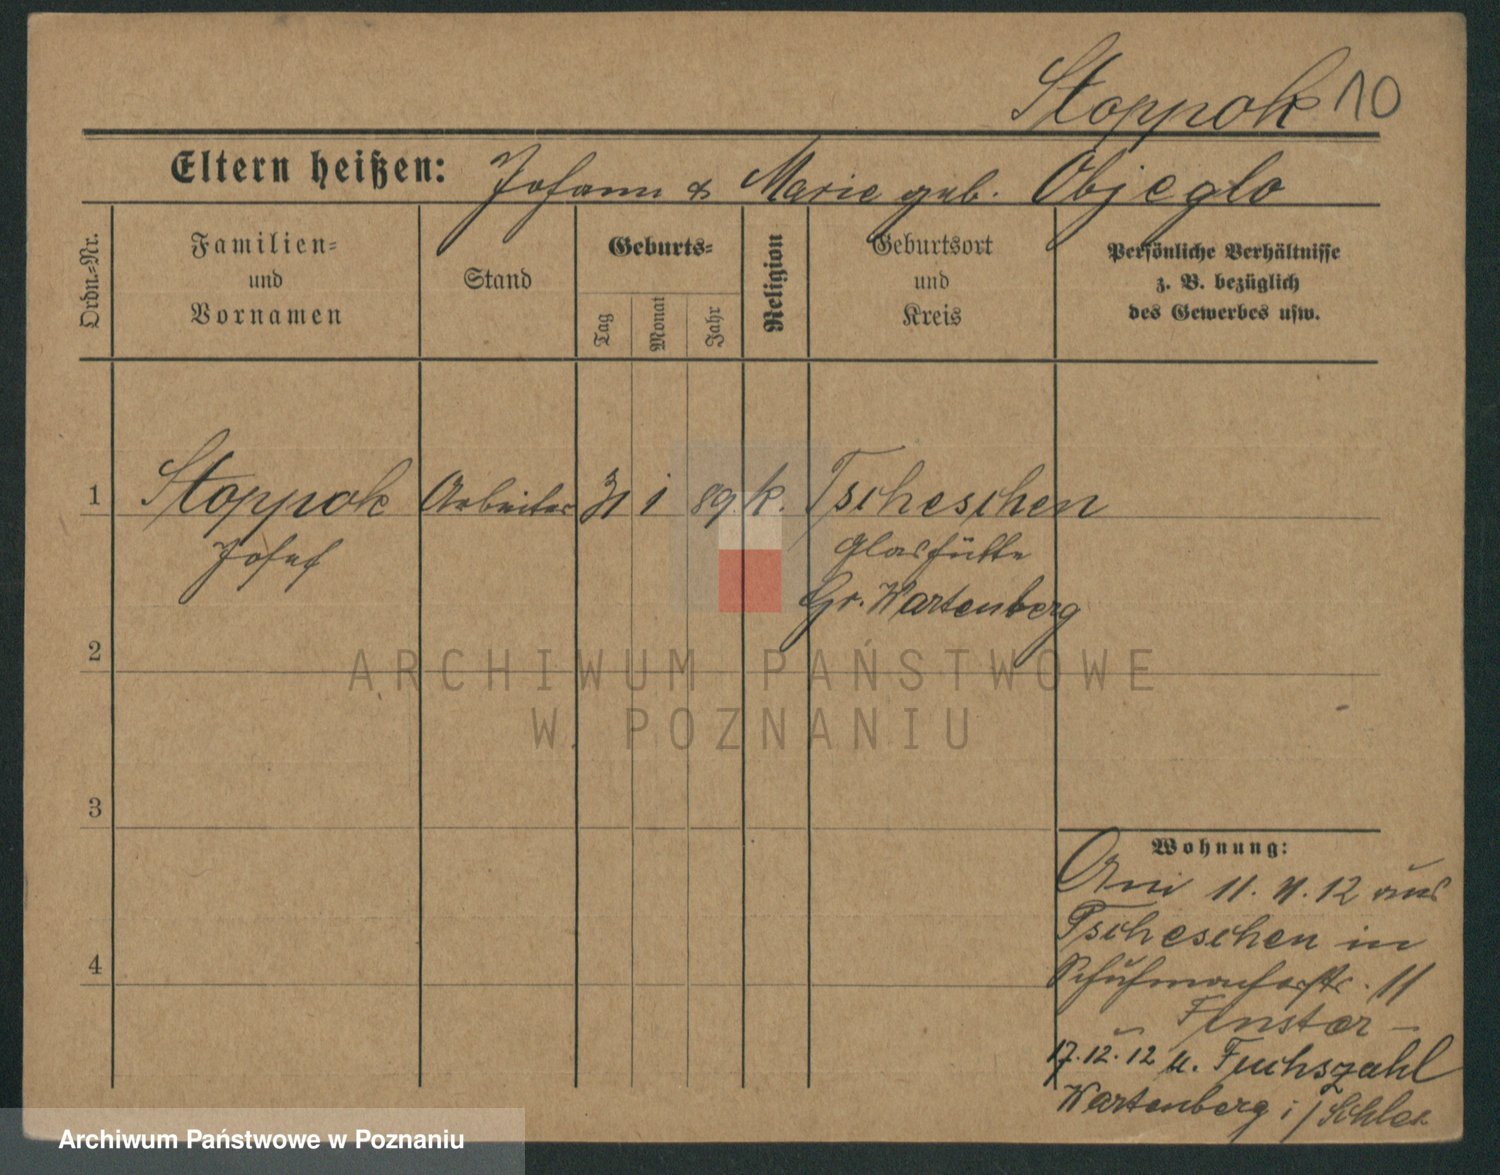 Stoppok 10
Eltern heißen: Johann & Marie geb. Objeglo
Ordn.=Nr.
Familien=
und
Vornamen
Stand
Geburts=
Tag
Monat
Jahr
Religion
Geburtsort
und
Kreis
Persönliche Verhältnisse
z. B. bezüglich
des Gewerbes usw.
1 Stoppok Arbeiter 31 1 89. k. Tscheschen
Josef Glashütte
Gr. Wartenberg
2
ARCHIWUM PAŃSTWOWE
W POZNANIU
3
Wohnung:
Am 11. 11. 12 aus
Tscheschen in
4
Schuhmacherstr. 11
17.12.12 n.
Wartenberg i/Schles
Archiwum Państwowe w Poznaniu